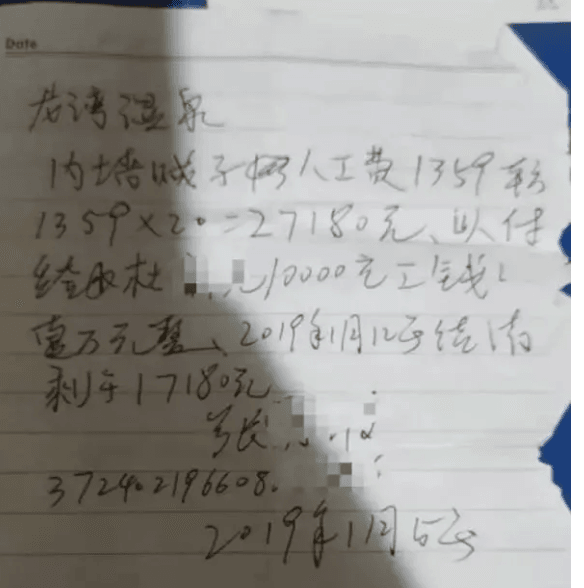 Date
龙湾温泉
内墙腻子 人工费1359
1359×20=27180元、以付
给 杜 元10000元工钱
壹万元整、2019年1月12号结清
剩余17180元
张
372402196608
2019年1月5号